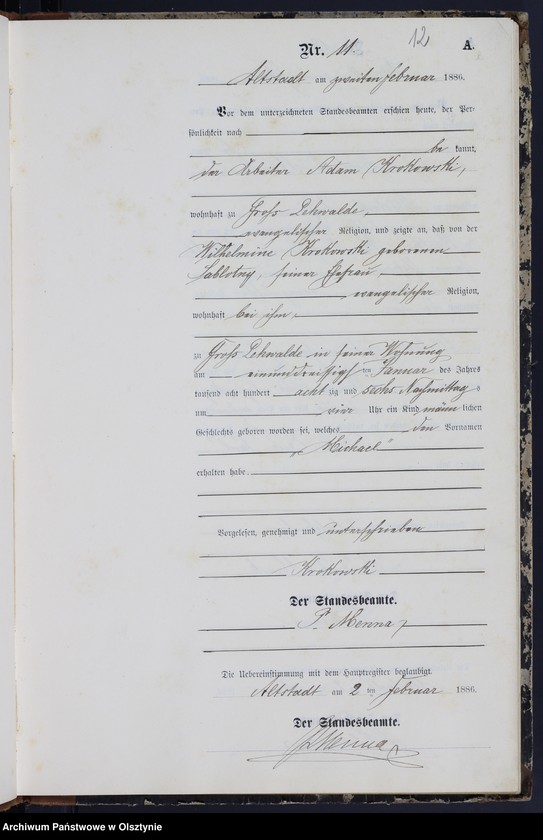 12
Nr. 11.
A.
Altstadt am zweiten Februar 1886.
Vor dem unterzeichneten Standesbeamten erschien heute, der Per-
sönlichkeit nach
be kannt,
der Arbeiter Adam Krokowski,
wohnhaft zu Gross Lehwalde,
evangelischer Religion, und zeigte an, daß von der
Wilhelmine Krokowski geborenen
Sablotny, seiner Ehefrau,
evangelischer Religion,
wohnhaft bei ihm,
zu Gross Lehwalde in seiner Wohnung
am einunddreissigsten Januar des Jahres
tausend acht hundert acht zig und sechs Nachmittag s
um vier Uhr ein Kind männ lichen
Geschlechts geboren worden sei, welches den Vornamen
„Michael"
erhalten habe.
Vorgelesen, genehmigt und unterschrieben
Krokowski
Der Standesbeamte.
P. Menna
Die Uebereinstimmung mit dem Hauptregister beglaubigt.
Altstadt am 2 ten Februar 1886.
Der Standesbeamte.
P. Menna
Archiwum Państwowe w Olsztynie